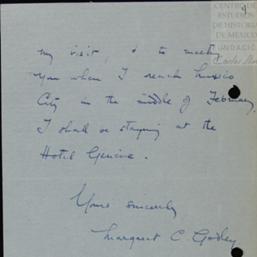 4
CENTRO DE
ESTUDIOS
DE HISTORIA
DE MEXICO
FUNDACIÓN
Carlos Slim
my visit, & to meeting
you when I reach Mexico
City in the middle of February.
I shall be staying at the
Hotel Geneve.
Yours sincerely
Margaret C.